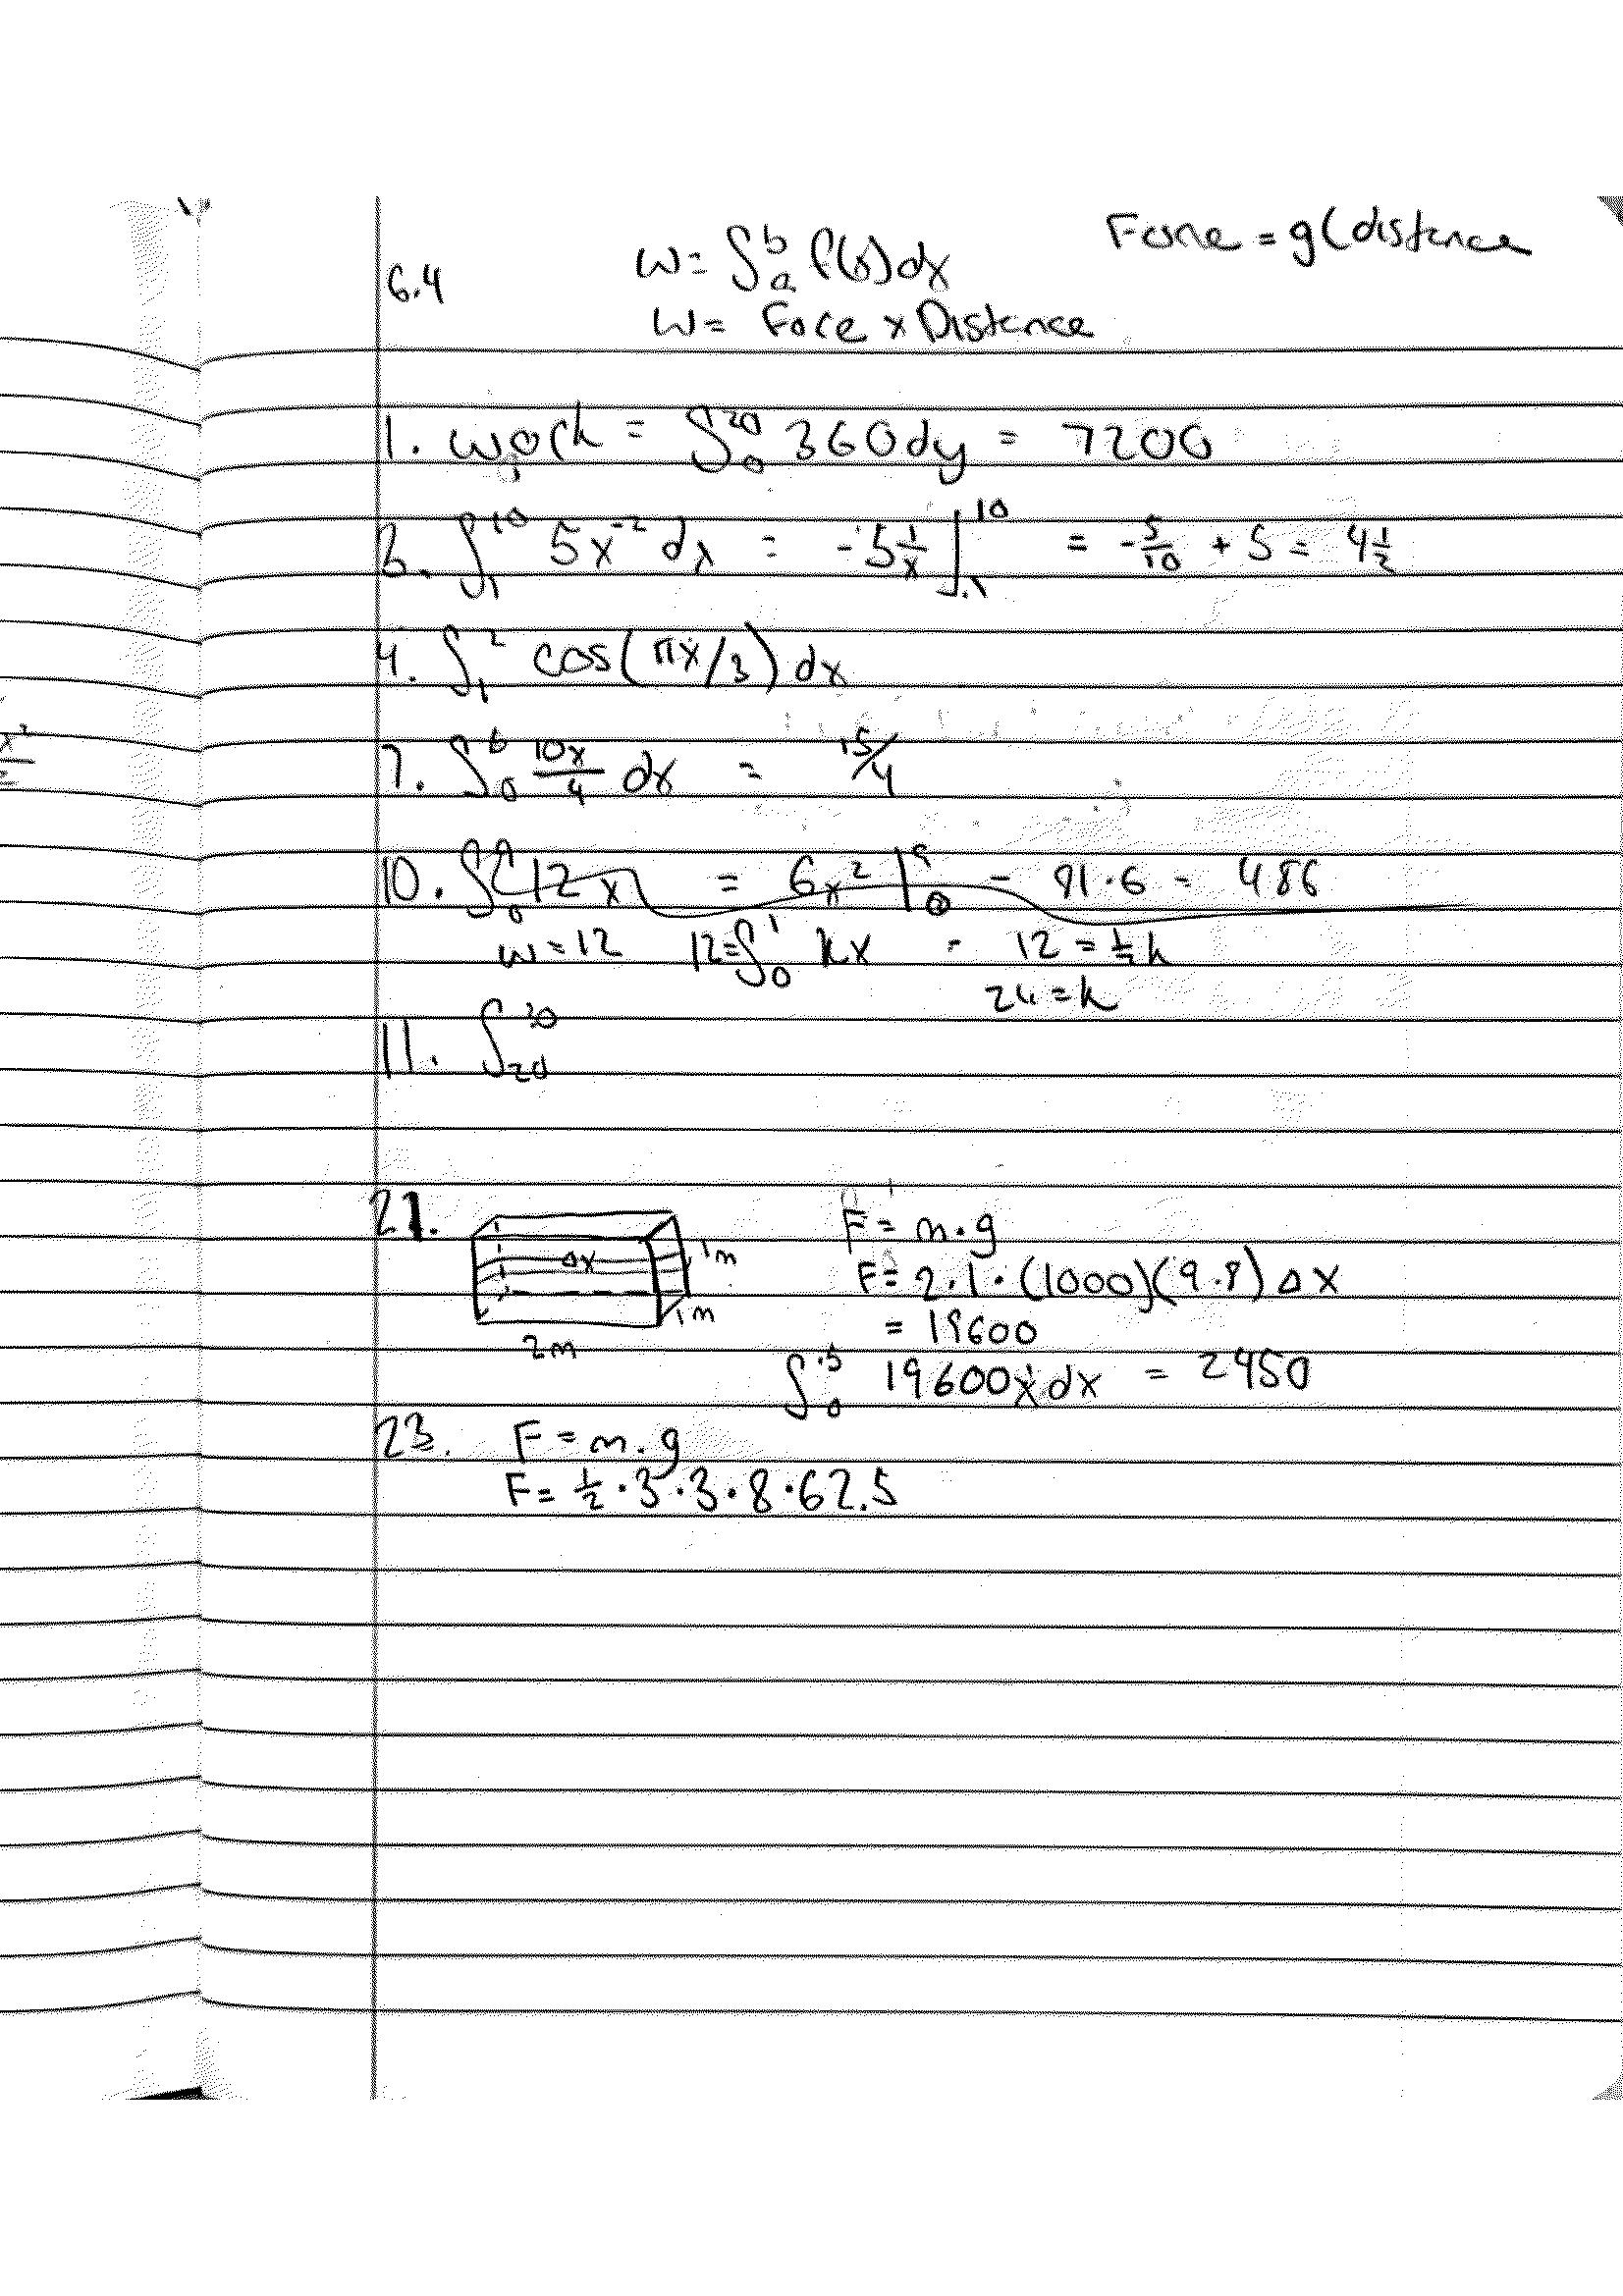 6.4
W = ∫_a^b f(x) dx
Force = g(distance
W = Force x Distance
1. Work = ∫_0^20 360 dy = 7200
3. ∫_1^10 5x^-2 dx = -5 1/x |_1^10 = -5/10 + 5 = 4 1/2
4. ∫_1^2 cos(πx/3) dx
7. ∫_0^6 10x/4 dx = 15/4
10. ∫_0^9 12x = 6x^2 |_0^9 = 81·6 = 486
W = 12 12 = ∫_0^1 kx - 12 = 1/2 k
24 = k
11. ∫_20^30
21. Δx 1m 1m 2m
F = m·g
F = 2·1·(1000)(9.8) Δx
= 19600
∫_0^.5 19600x dx = 2450
23. F = m·g
F = 1/2·3·3·8·62.5